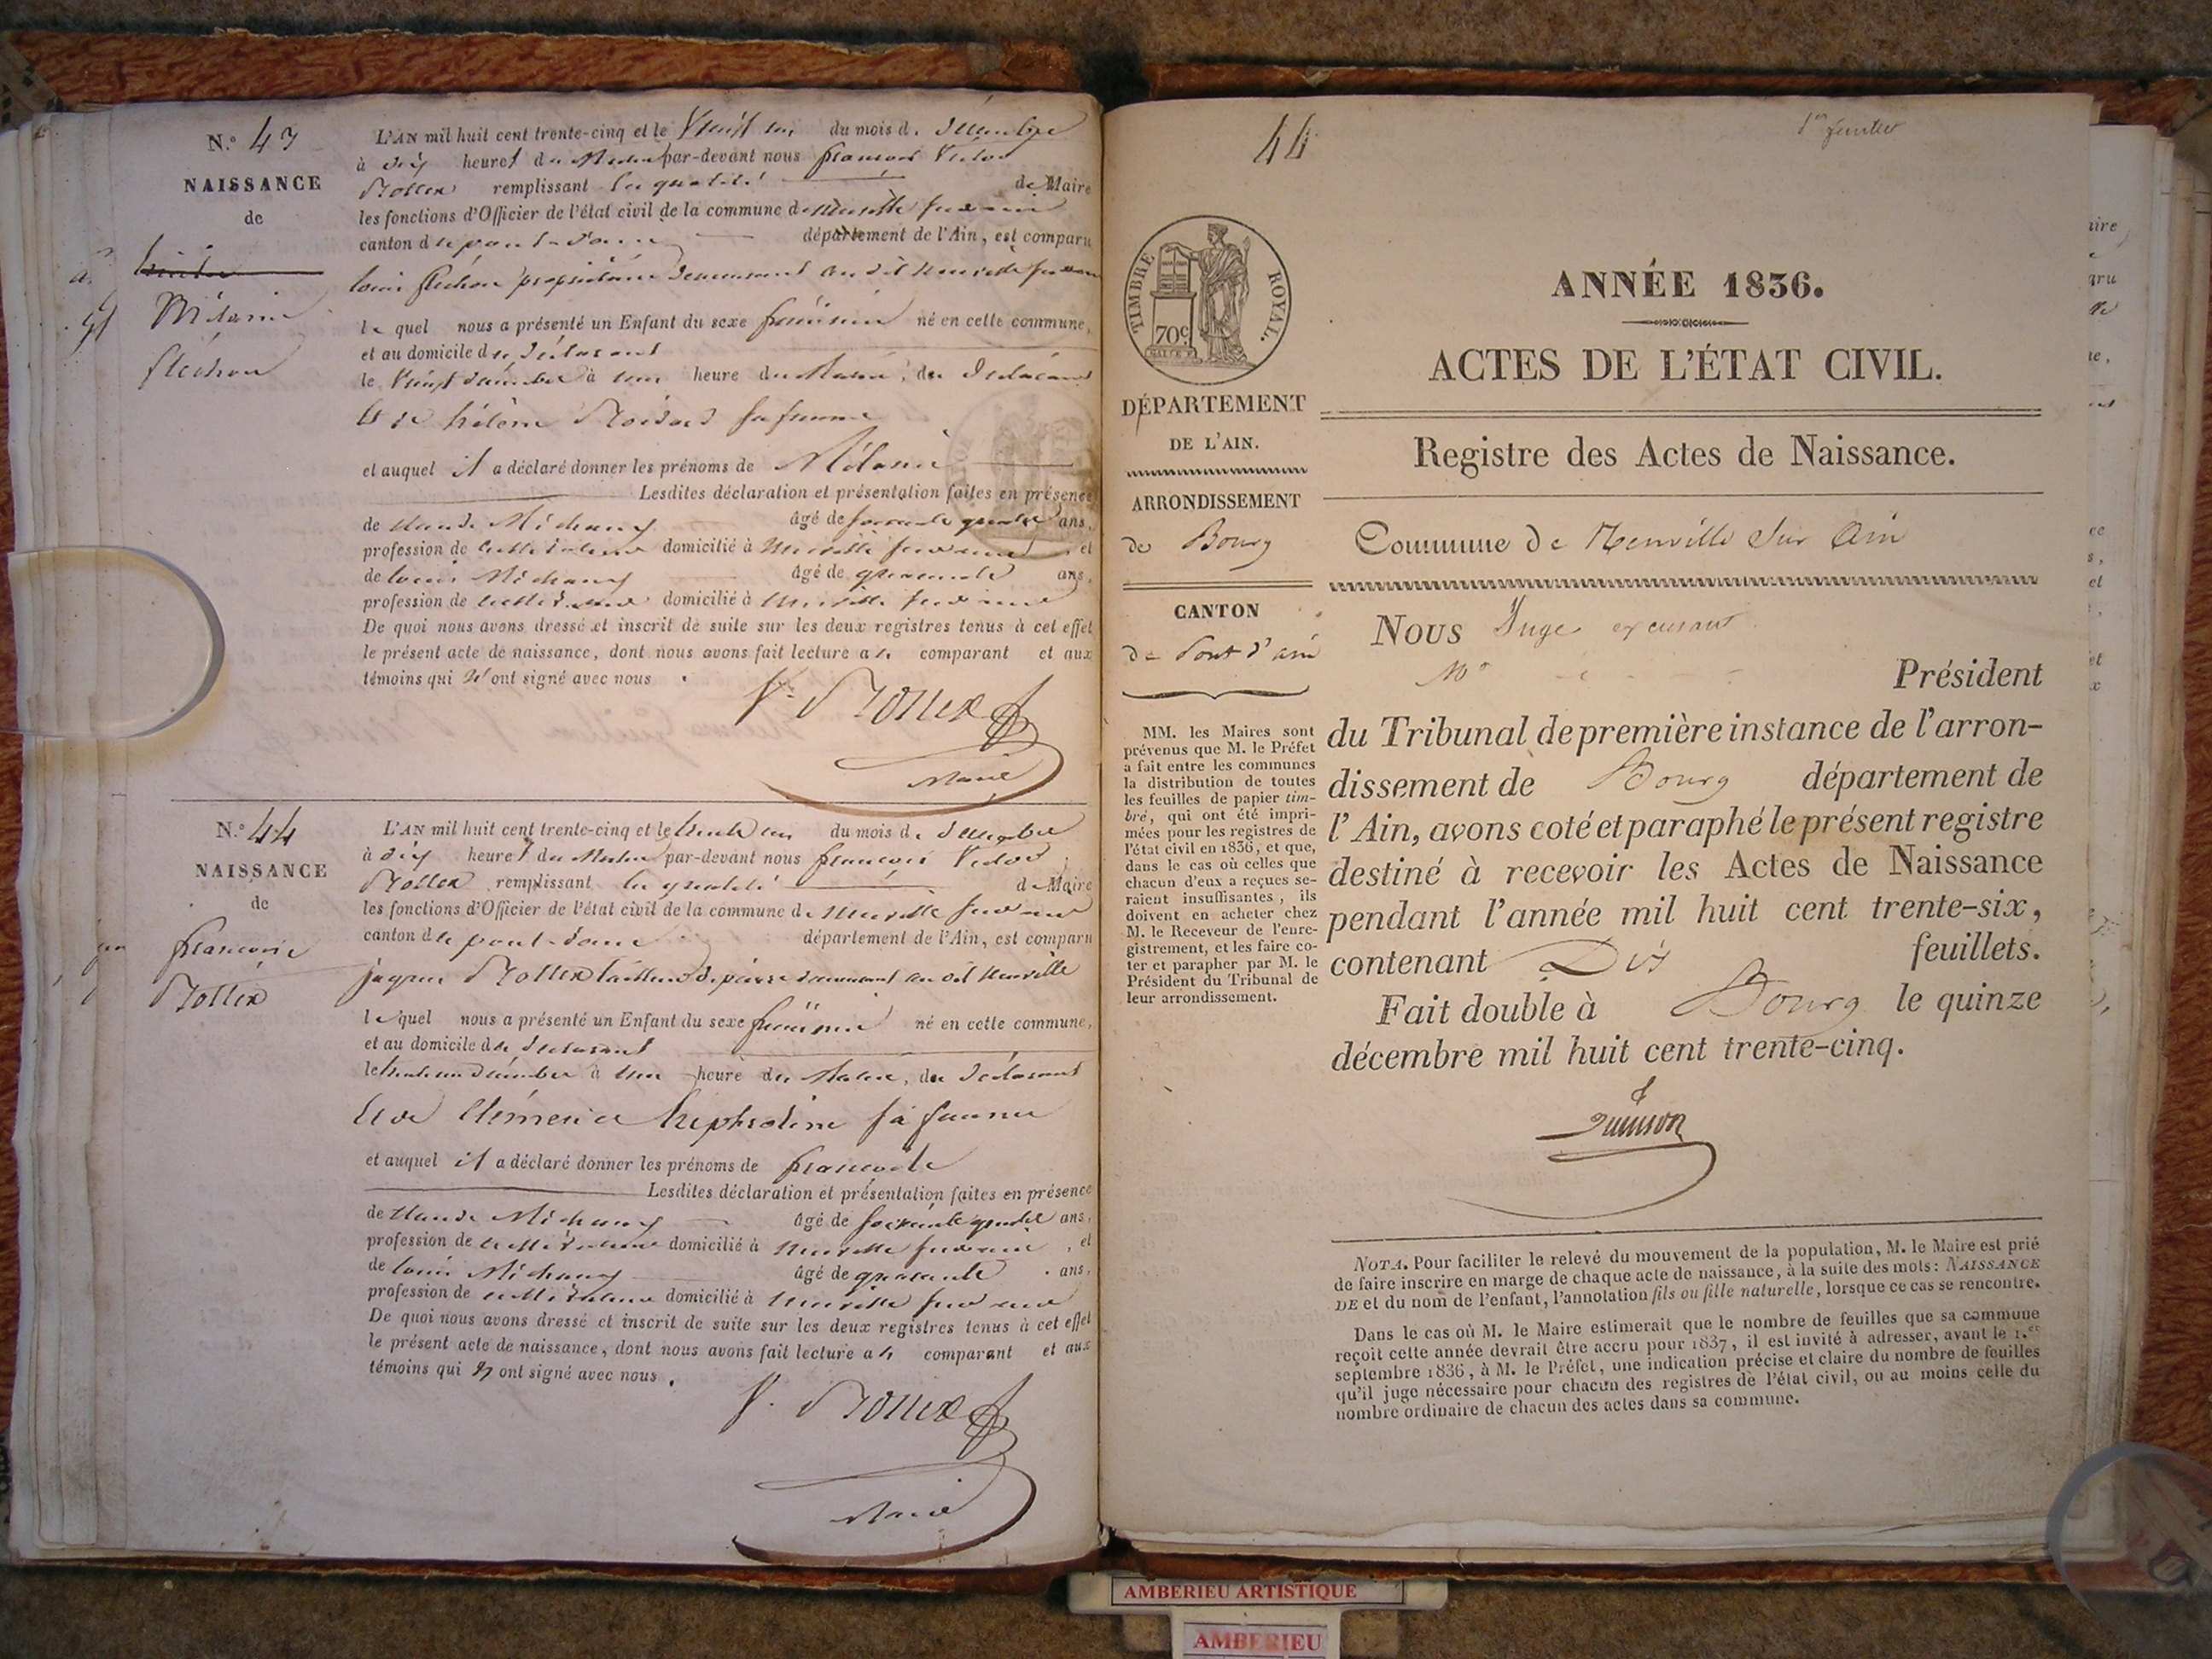 N.º 43
NAISSANCE
de
Mélanie
fléchon
L'AN mil huit cent trente-cinq et le Vingt un du mois de décembre
à dix heures du Matin par-devant nous françois Victor
remplissant la qualité de Maire
les fonctions d'Officier de l'état civil de la commune de Neuville sur ain
canton de pont-d'ain département de l'Ain, est comparu
louis fléchon propriétaire demeurant au dit Neuville sur ain
le quel nous a présenté un Enfant du sexe féminin né en cette commune,
et au domicile du déclarant
le Vingt décembre à une heure du Matin, du déclarant
et de hélène sa femme
et auquel il a déclaré donner les prénoms de Mélanie
Lesdites déclaration et présentation faites en présence
de claude Michaux âgé de soixante quatre ans,
profession de cultivateur domicilié à Neuville sur ain, et
de louis Michaux âgé de quarante ans,
profession de cultivateur domicilié à Neuville sur ain
De quoi nous avons dressé et inscrit de suite sur les deux registres tenus à cet effet
le présent acte de naissance, dont nous avons fait lecture au comparant et aux
témoins qui n'ont signé avec nous.
Maire
N.º 44
NAISSANCE
de
L'AN mil huit cent trente-cinq et le trente un du mois de décembre
à dix heures du Matin par-devant nous françois Victor
remplissant la qualité de Maire
les fonctions d'Officier de l'état civil de la commune de Neuville sur ain
canton de pont-d'ain département de l'Ain, est comparu
jaques tailleur de pierre demeurant au dit Neuville
le quel nous a présenté un Enfant du sexe féminin né en cette commune,
et au domicile du déclarant
le trente un décembre à une heure du Matin, du déclarant
et de Clémence sa femme
et auquel il a déclaré donner les prénoms de
Lesdites déclaration et présentation faites en présence
de claude Michaux âgé de soixante quatre ans,
profession de cultivateur domicilié à Neuville sur ain, et
de louis Michaux âgé de quarante ans,
profession de cultivateur domicilié à Neuville sur ain
De quoi nous avons dressé et inscrit de suite sur les deux registres tenus à cet effet
le présent acte de naissance, dont nous avons fait lecture au comparant et aux
témoins qui n'ont signé avec nous.
Maire
44
1er feuillet
TIMBRE ROYAL.
70c
DÉPARTEMENT
DE L'AIN.
ARRONDISSEMENT
de Bourg
CANTON
de Pont d'ain
MM. les Maires sont
prévenus que M. le Préfet
a fait entre les communes
la distribution de toutes
les feuilles de papier tim-
bré, qui ont été impri-
mées pour les registres de
l'état civil en 1836, et que,
dans le cas où celles que
chacun d'eux a reçues se-
raient insuffisantes, ils
doivent en acheter chez
M. le Receveur de l'enre-
gistrement, et les faire co-
ter et parapher par M. le
Président du Tribunal de
leur arrondissement.
ANNÉE 1836.
ACTES DE L'ÉTAT CIVIL.
Registre des Actes de Naissance.
Commune de Neuville sur Ain
Nous Juge excusant
Mr Président
du Tribunal de première instance de l'arron-
dissement de Bourg département de
l'Ain, avons coté et paraphé le présent registre
destiné à recevoir les Actes de Naissance
pendant l'année mil huit cent trente-six,
contenant Dix feuillets.
Fait double à Bourg le quinze
décembre mil huit cent trente-cinq.
NOTA. Pour faciliter le relevé du mouvement de la population, M. le Maire est prié
de faire inscrire en marge de chaque acte de naissance, à la suite des mots: NAISSANCE
DE et du nom de l'enfant, l'annotation fils ou fille naturelle, lorsque ce cas se rencontre.
Dans le cas où M. le Maire estimerait que le nombre de feuilles que sa commune
reçoit cette année devrait être accru pour 1837, il est invité à adresser, avant le 1.er
septembre 1836, à M. le Préfet, une indication précise et claire du nombre de feuilles
qu'il juge nécessaire pour chacun des registres de l'état civil, ou au moins celle du
nombre ordinaire de chacun des actes dans sa commune.
AMBERIEU ARTISTIQUE
AMBERIEU